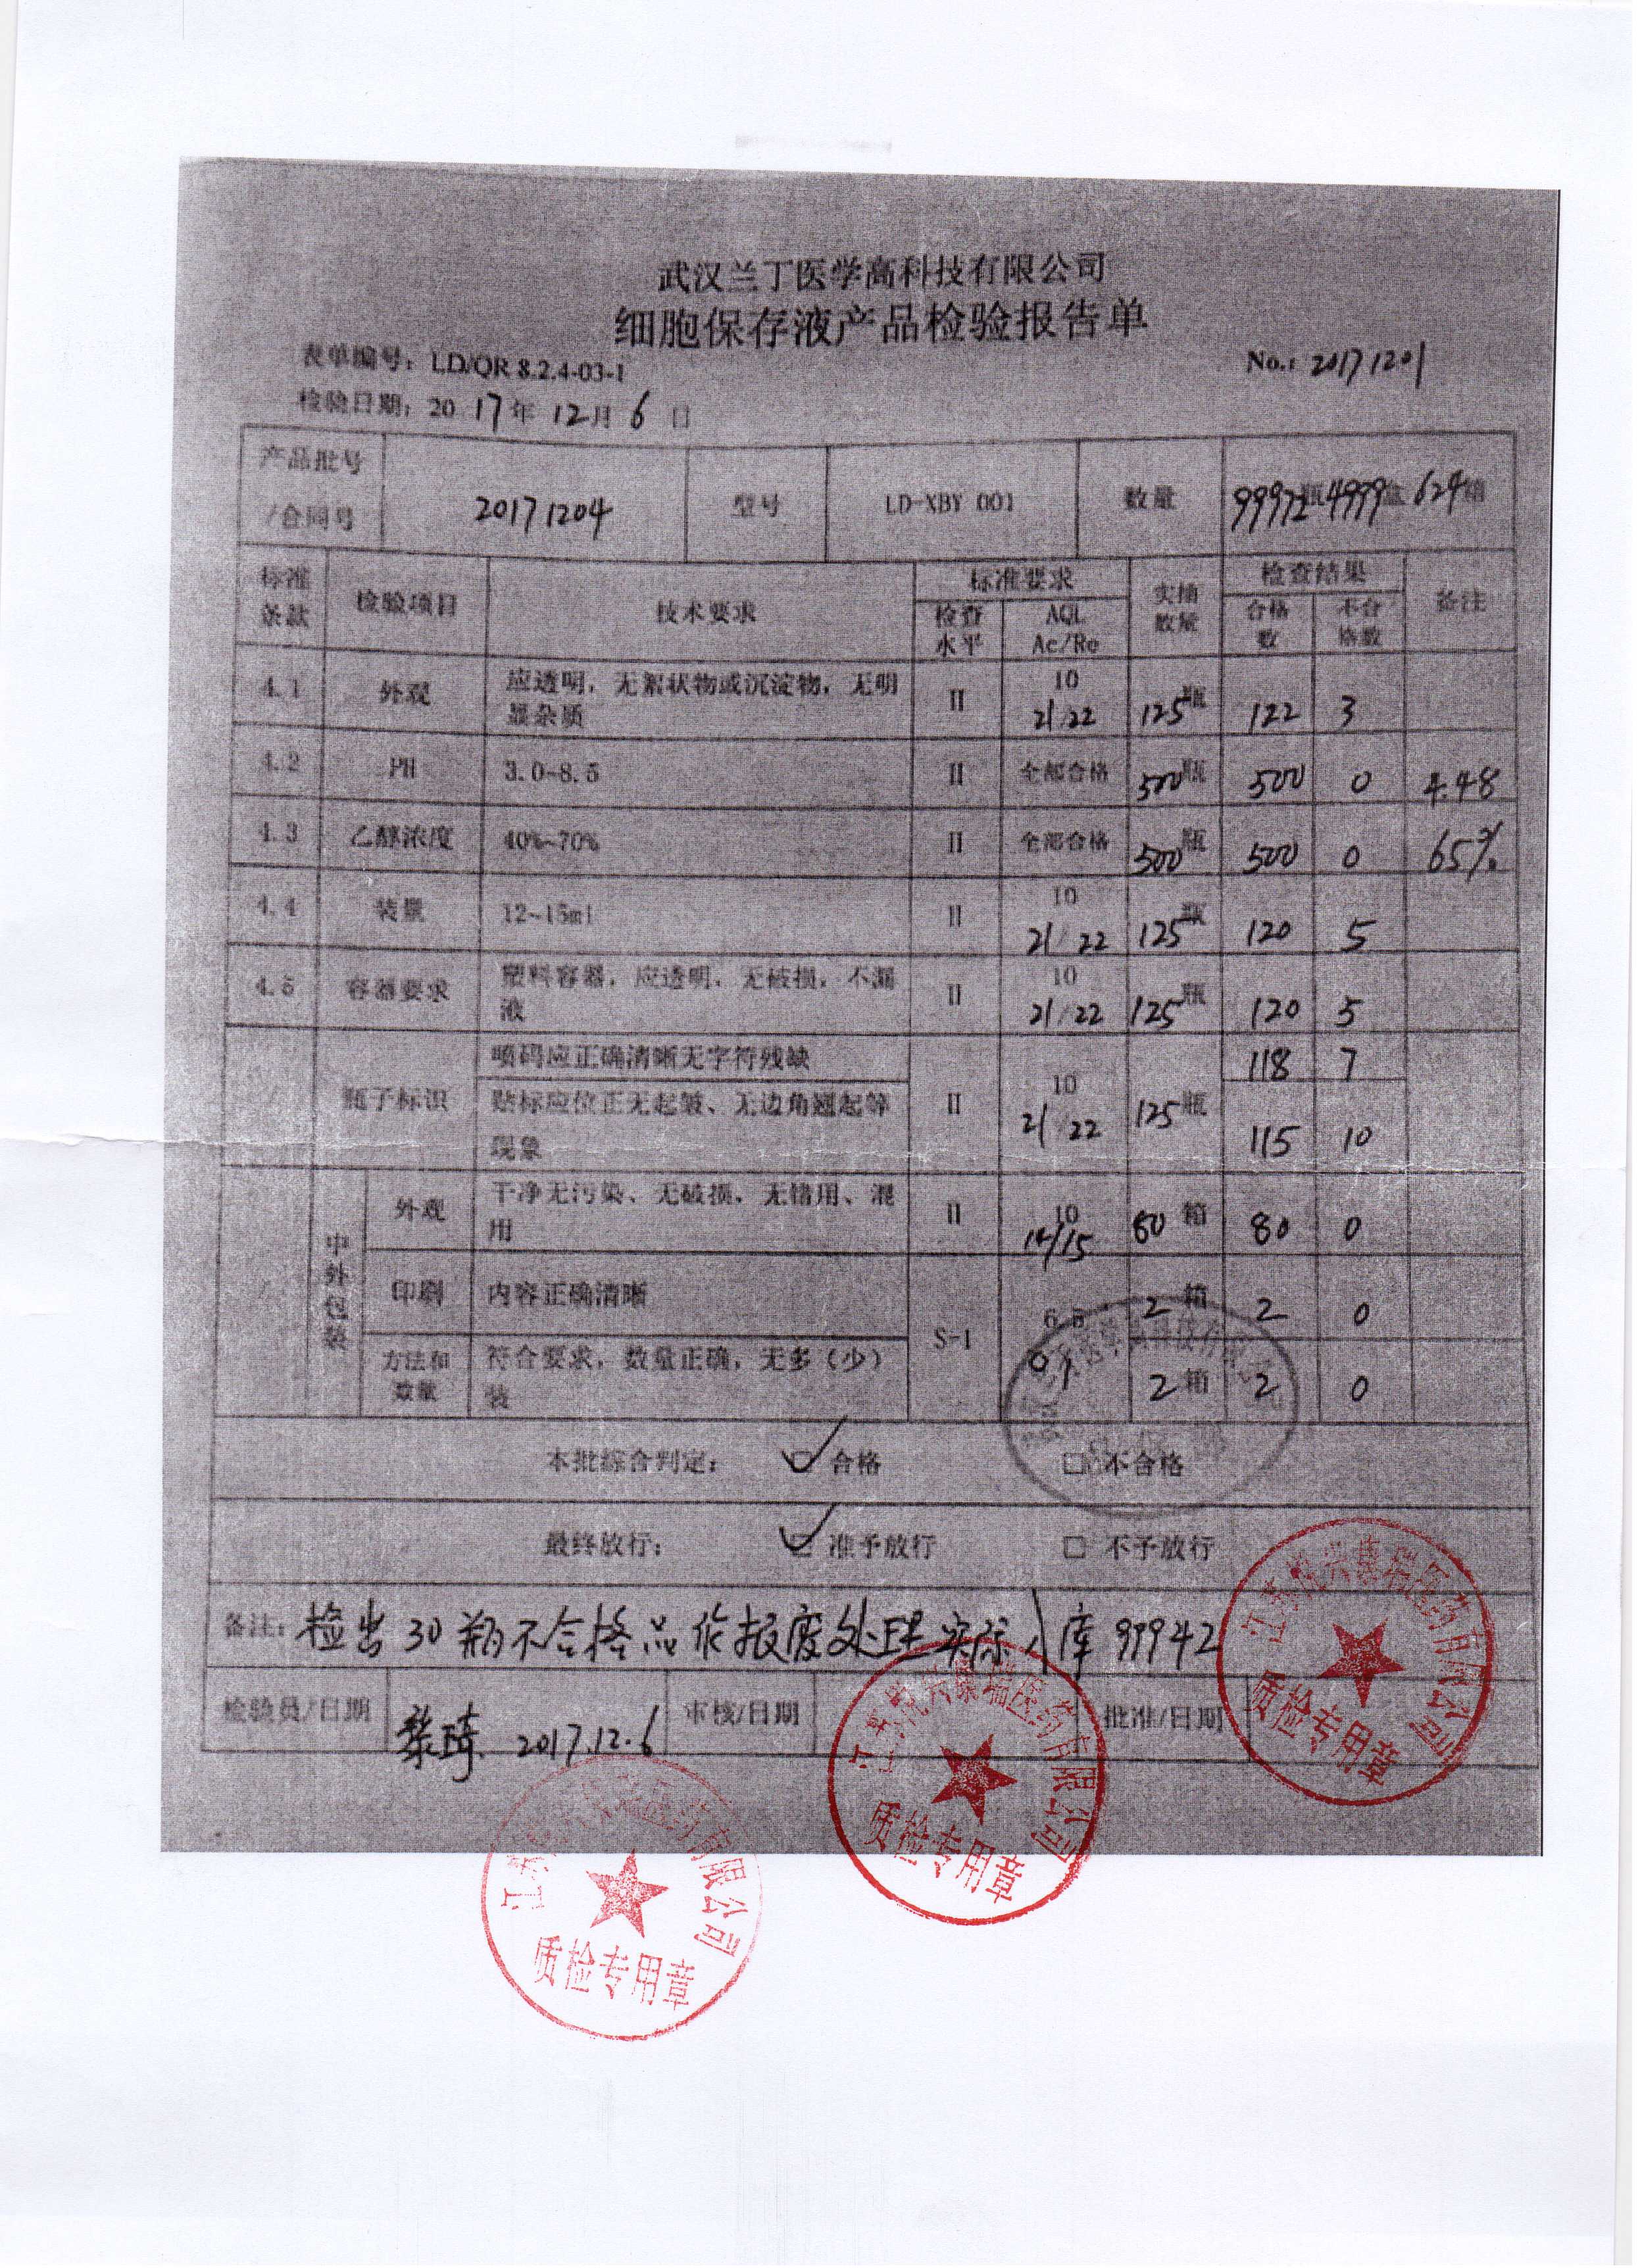 武汉兰丁医学高科技有限公司
细胞保存液产品检验报告单
表单编号：LD/QR 8.2.4-03-1 No.：20171201
检验日期：2017年12月6日
产品批号/合同号 20171204 型号 LD-XBY 001 数量 99972瓶4999盒624箱
标准条款 检验项目 技术要求 标准要求 实抽数量 检查结果 备注
检查水平 AQL Ac/Re 合格数 不合格数
4.1 外观 应透明，无絮状物或沉淀物，无明显杂质 II 10 21/22 125瓶 122 3
4.2 PH 3.0-8.5 II 全部合格 500瓶 500 0 4.48
4.3 乙醇浓度 40%-70% II 全部合格 500瓶 500 0 65%
4.4 装量 12~15ml II 10 21/22 125瓶 120 5
4.5 容器要求 塑料容器，应透明，无破损，不漏液 II 10 21/22 125瓶 120 5
/ 瓶子标识 喷码应正确清晰无字符残缺 II 10 21/22 125瓶 118 7
贴标应位正无起皱、无边角翘起等现象 115 10
/ 中外包装 外观 干净无污染、无破损，无错用、混用 II 10 14/15 80箱 80 0
印刷 内容正确清晰 S-1 6.5 0/1 2箱 2 0
方法和数量 符合要求，数量正确，无多（少）装 2箱 2 0
本批综合判定： ☑ 合格 □ 不合格
最终放行： ☑ 准予放行 □ 不予放行
备注：检出30瓶不合格品作报废处理实际入库99942
检验员/日期 2017.12.6 审核/日期 批准/日期
质检专用章
质检专用章
质检专用章